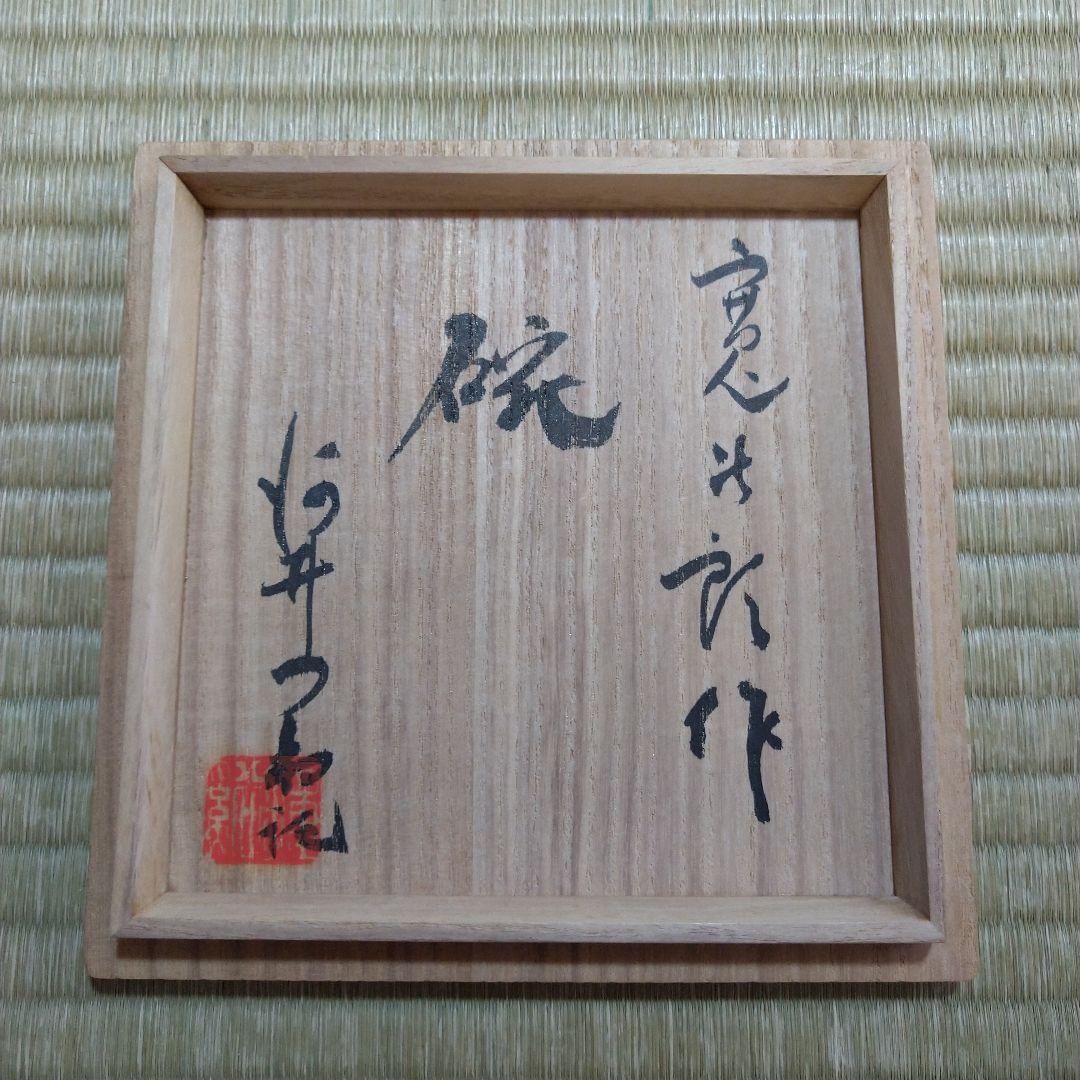 寛次郎作
碗
河井つね記